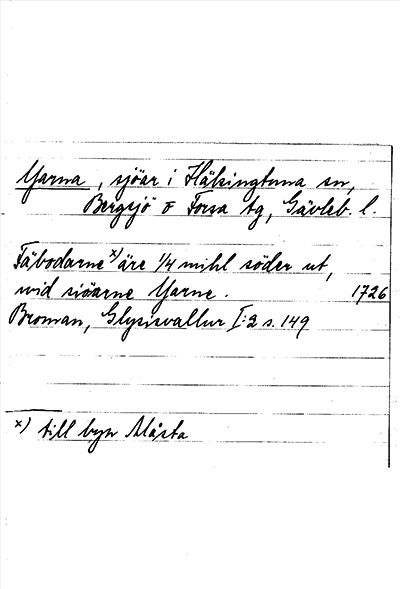 Yarna, sjöar i Hälsingtuna sn,
Bergsjö o Forsa tg, Gävleb. l.
Fäbodarne x) äre 1/4 mihl söder ut,
wid siöarne Yarne. 1726
Broman, Glysisvallur I:2 s. 149
x) till byn Mästa